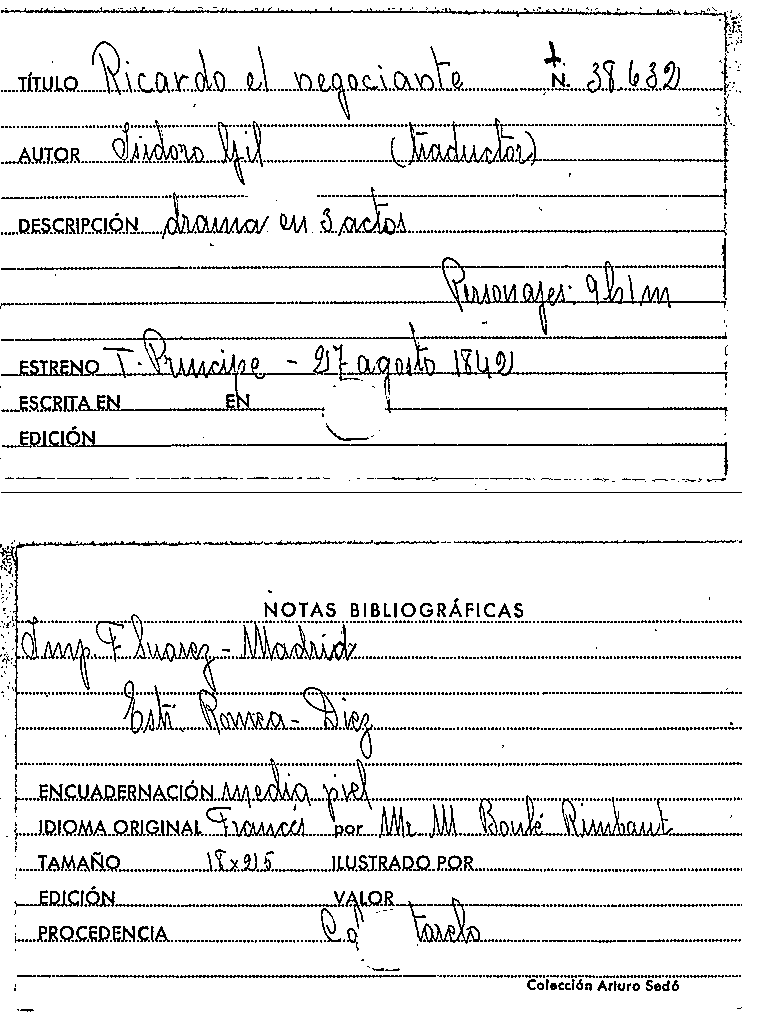 TÍTULO Ricardo el negociante N. 38.632
AUTOR Isidoro Gil (traductor)
DESCRIPCIÓN drama en 3 actos
Personajes: 9 h 1 m
ESTRENO T. Principe - 27 agosto 1842
ESCRITA EN EN
EDICIÓN
NOTAS BIBLIOGRÁFICAS
Imp. F Suarez - Madrid
Est: Romea - Diez
ENCUADERNACIÓN media piel
IDIOMA ORIGINAL Francés por Mr M Boulé Rimbaut
TAMAÑO 18x215 ILUSTRADO POR
EDICIÓN VALOR
PROCEDENCIA tarelo
Colección Arturo Sedó